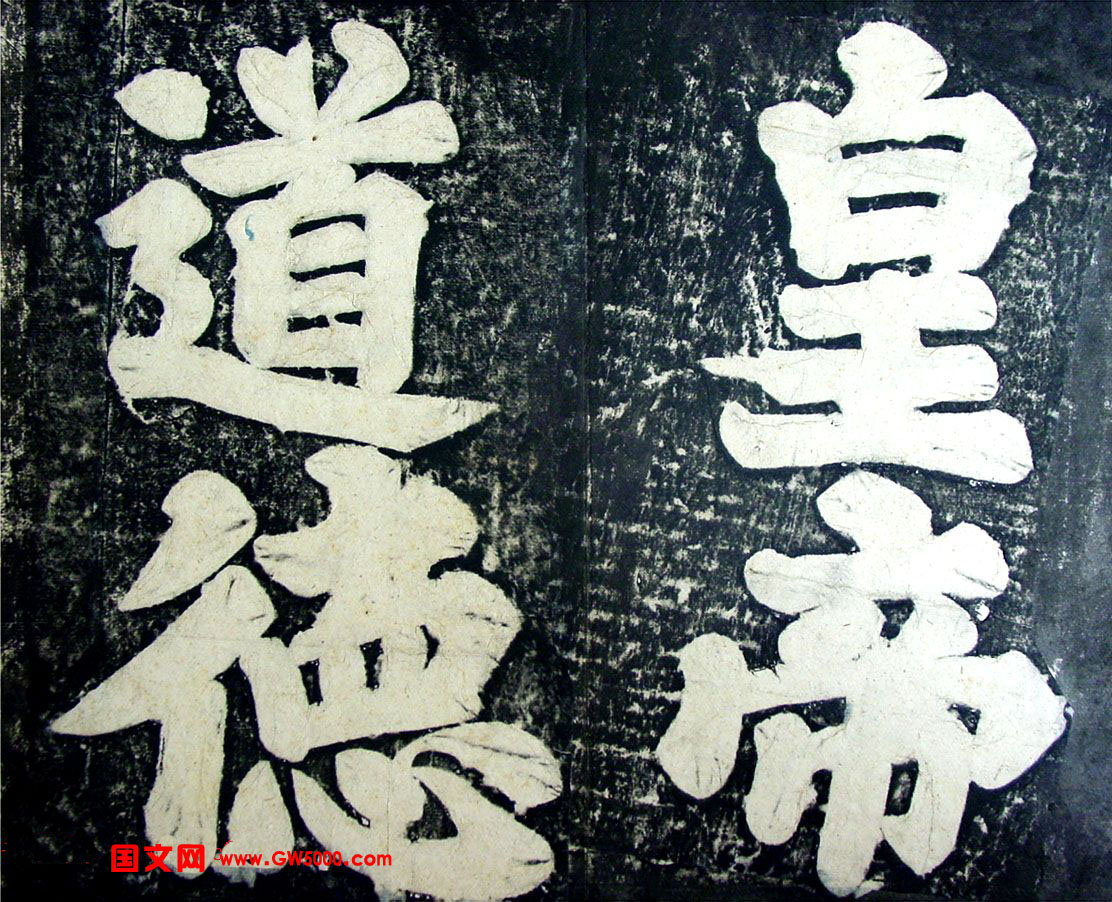 皇帝
道德
国文网 www.GW5000.com